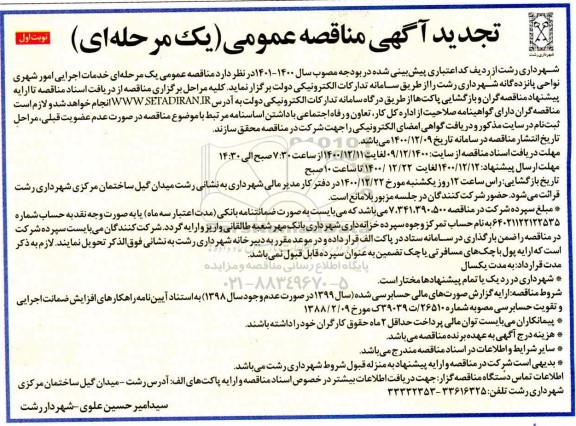 تجدید آگهی مناقصه عمومی (یک مرحله‌ای)
نوبت اول
شهرداری رشت
شهرداری رشت از ردیف کد اعتباری پیش‌بینی شده در بودجه مصوب سال ۱۴۰۰-۱۴۰۱ در نظر دارد مناقصه عمومی یک مرحله‌ای خدمات اجرایی امور شهری
نواحی پانزده‌گانه شهرداری رشت را از طریق سامانه تدارکات الکترونیکی دولت برگزار نماید. کلیه مراحل برگزاری مناقصه از دریافت اسناد مناقصه تا ارایه
پیشنهاد مناقصه‌گران و بازگشایی پاکت‌ها از طریق درگاه سامانه تدارکات الکترونیکی دولت به آدرس WWW.SETADIRAN.IR انجام خواهد شد و لازم است
مناقصه گران دارای گواهینامه صلاحیت از اداره کل کار، تعاون و رفاه اجتماعی با داشتن اساسنامه مرتبط با موضوع مناقصه در صورت عدم عضویت قبلی، مراحل
ثبت‌نام در سایت مذکور و دریافت گواهی امضای الکترونیکی را جهت شرکت در مناقصه محقق سازند.
تاریخ انتشار مناقصه در سامانه تاریخ ۱۴۰۰/۱۲/۰۹ می‌باشد.
مهلت دریافت اسناد مناقصه از سایت: ۰۹/۱۲/۱۴۰۰ لغایت ۱۴۰۰/۱۲/۱۱ از ساعت ۷:۳۰ صبح الی ۱۴:۳۰
مهلت ارسال پیشنهاد: ۱۴۰۰/۱۲/۱۲ لغایت ۱۴۰۰/۱۲/۲۲ تا ساعت ۱۰ صبح
تاریخ بازگشایی: راس ساعت ۱۲ روز یکشنبه مورخ ۱۴۰۰/۱۲/۲۲ در دفتر کار مدیر مالی شهرداری به نشانی رشت میدان گیل ساختمان مرکزی شهرداری رشت
قرائت می‌شود. حضور شرکت کنندگان در جلسه مزبور بلامانع است.
* مبلغ سپرده شرکت در مناقصه ۷.۳۴۱.۳۹۰.۵۰۰ می‌باشد که می‌بایست به صورت ضمانتنامه بانکی (مدت اعتبار سه ماه) یا به صورت وجه نقد به حساب شماره
۶۴۰۲۱۱۲۲۱۲۲۵۳۵ به نام حساب تمرکز وجوه سپرده خزانه‌داری شهرداری بانک مهر شعبه طالقانی واریز و ارایه گردد. شرکت‌کنندگان می‌بایست سپرده شرکت
در مناقصه را ضمن بارگذاری در سامانه ستاد در پاکت الف قرار داده و در موعد مقرر به دبیرخانه شهرداری رشت به نشانی فوق‌الذکر تحویل نمایند. لازم به ذکر
است که ارایه پول یا چک‌های مسافرتی یا چک تضمین به عنوان سپرده قابل قبول نمی‌باشد.
مدت قرارداد: به مدت یکسال
پایگاه اطلاع رسانی مناقصه و مزایده
۰۲۱-۸۸۳۴۹۶۷۰-۵
* شهرداری در رد یک یا تمام پیشنهادها مختار است.
شروط مناقصه: ارایه گزارش صورت‌های مالی حسابرسی شده (سال ۱۳۹۹ در صورت عدم وجود سال ۱۳۹۸) به استناد آیین‌نامه راهکارهای افزایش ضمانت اجرایی
و تقویت حسابرسی مصوبه شماره ۲۶۵۱۰/ت ۳۹۰۳۹ک مورخ ۱۳۸۸/۲/۰۹
* پیمانکاران می‌بایست توان مالی پرداخت حداقل ۲ ماه حقوق کارگران خود را داشته باشند.
* هزینه درج آگهی به عهده برنده مناقصه می‌باشد.
* سایر شرایط و اطلاعات در اسناد مناقصه مندرج می‌باشد.
* بدیهی است شرکت در مناقصه و ارایه پیشنهاد به منزله قبول شروط شهرداری رشت می‌باشد.
اطلاعات تماس دستگاه مناقصه گزار: جهت دریافت اطلاعات بیشتر در خصوص اسناد مناقصه و ارایه پاکت‌های الف: آدرس رشت - میدان گیل ساختمان مرکزی
شهرداری رشت تلفن: ۳۳۶۱۶۳۲۵ - ۳۳۳۳۲۳۵۳
سید امیر حسین علوی - شهردار رشت